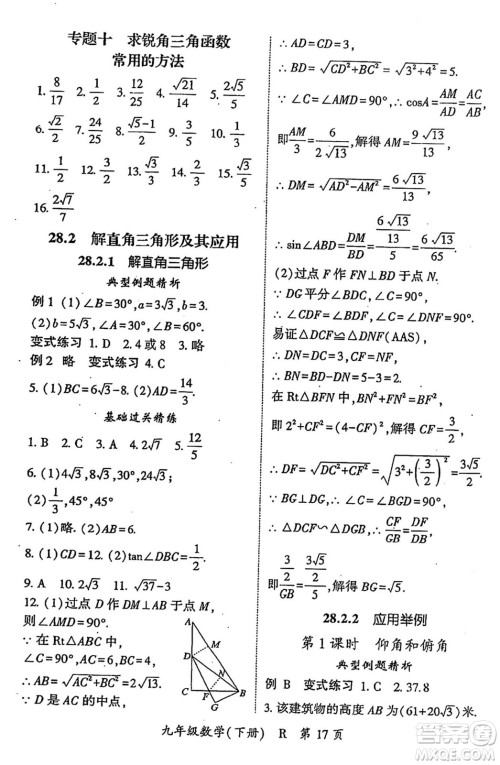 专题十 求锐角三角函数
常用的方法
1. 8/17 2. 3/5 3. 3/4 4. √21/2 5. 2√5/5
6. √2/2 7. 24/25 8. (√5-1)/2 9. √3/3 10. 2/3
11. 1/2 12. 4/5 13. √2/4 14. 1/3 15. 4/5
16. 2√7/7
28.2 解直角三角形及其应用
28.2.1 解直角三角形
典型例题精析
例1 (1)∠B=30°,a=3√3,b=3.
(2)∠B=30°,b=5√3,c=10√3. 3. 略
变式练习
例2 略 变式练习 4. C
5. (1)BC=6√3-8. (2)AB=14/3.
基础过关精练
1. B 2. 2 3. D 4. C 5. 24
6. (1)4√3,8√3,30°.
(2)1/3,45°,45°
7. (1)略. (2)AB=6.
8. (1)CD=2. (2)tan∠DBC=1/2.
9. A 10. 2√3 11. √37-3
12. (1)过点A作AM⊥BD,
则∠AMD=90°.
∵在Rt△ABC中,
∠C=90°,
∠CBD=30°,BC=3,
∴CD=√3
∵D是AC的中点,
∴AD=CD=3.
∴BD=√(CD²+BC²)=√(3²+4²)=5.
∵∠C=∠AMD=90°,∴cosA=AM/AD=AC/AB.
即AM/3=6/(2√13).解得AM=9√13/13.
∴DM=√(AD²-AM²)=6√13/13.
∴sin∠ABD=DM/BD=(6√13/13)/5=6√13/65.
(2)过点F作FN⊥BD于点N,
∵DG平分∠CDB,∠C=90°,
∴∠CDF=∠BDF,CF=FN.
易证△DCF≌△DNF(AAS),
∴DN=CD=3. ∴BN=2.
在Rt△BFN中,BN²+FN²=BF²,
即2²+CF²=(4-CF)²,解得CF=3/2.
∴DF=√(DC²+CF²)=√(3²+(3/2)²)=3√5/2.
∵BG⊥DG,∴∠C=∠BGD=90°.
∴△DCF∽△DGB.∴CF/GB=DF/DB.
即(3/2)/GB=(3√5/2)/5,解得GB=√5.
28.2.2 应用举例
第1课时 仰角和俯角
典型例题精析
例 B 变式练习 1. C 2. 37.8
3. 该建筑物的高度AB为(61+20√3)米.
九年级数学(下册) R 第17页